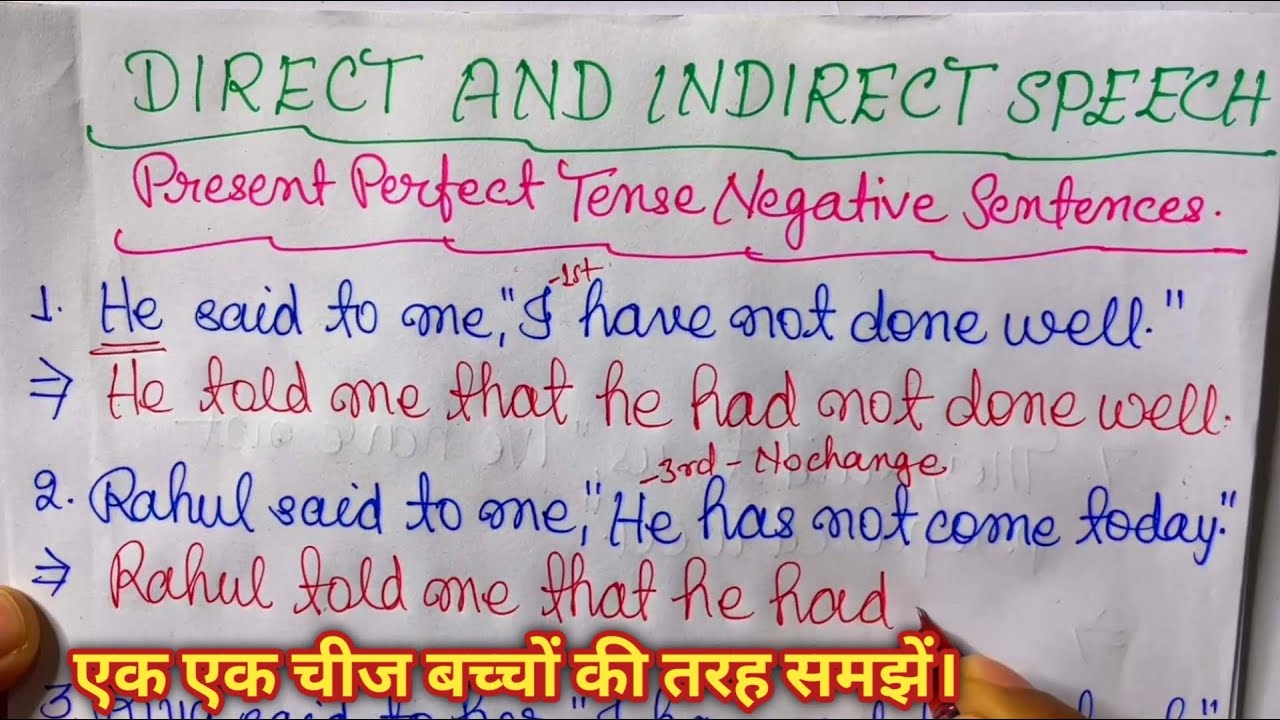 DIRECT AND INDIRECT SPEECH
Present Perfect Tense Negative Sentences.
-1st
1. He said to me, "I have not done well."
⇒ He told me that he had not done well.
-3rd - Nochange
2. Rahul said to me, "He has not come today."
⇒ Rahul told me that he had
एक एक चीज बच्चों की तरह समझें।
3. said to "I